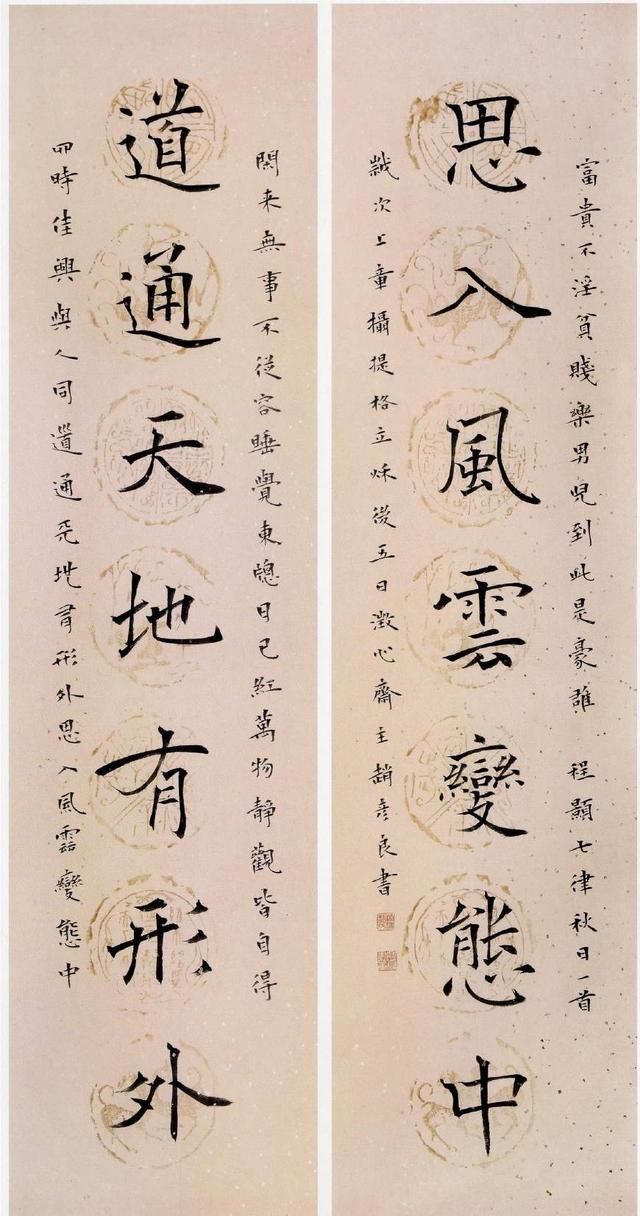 道通天地有形外
閑来無事不從容睡覺東牕日已紅萬物靜觀皆自得
四時佳興與人同道通天地有形外思入風雲變態中
思入風雲變態中
富貴不淫貧賤樂男兒到此是豪雄 程顥七律秋日一首
歲次上章攝提格立秌後五日澂心齋主趙彥良書